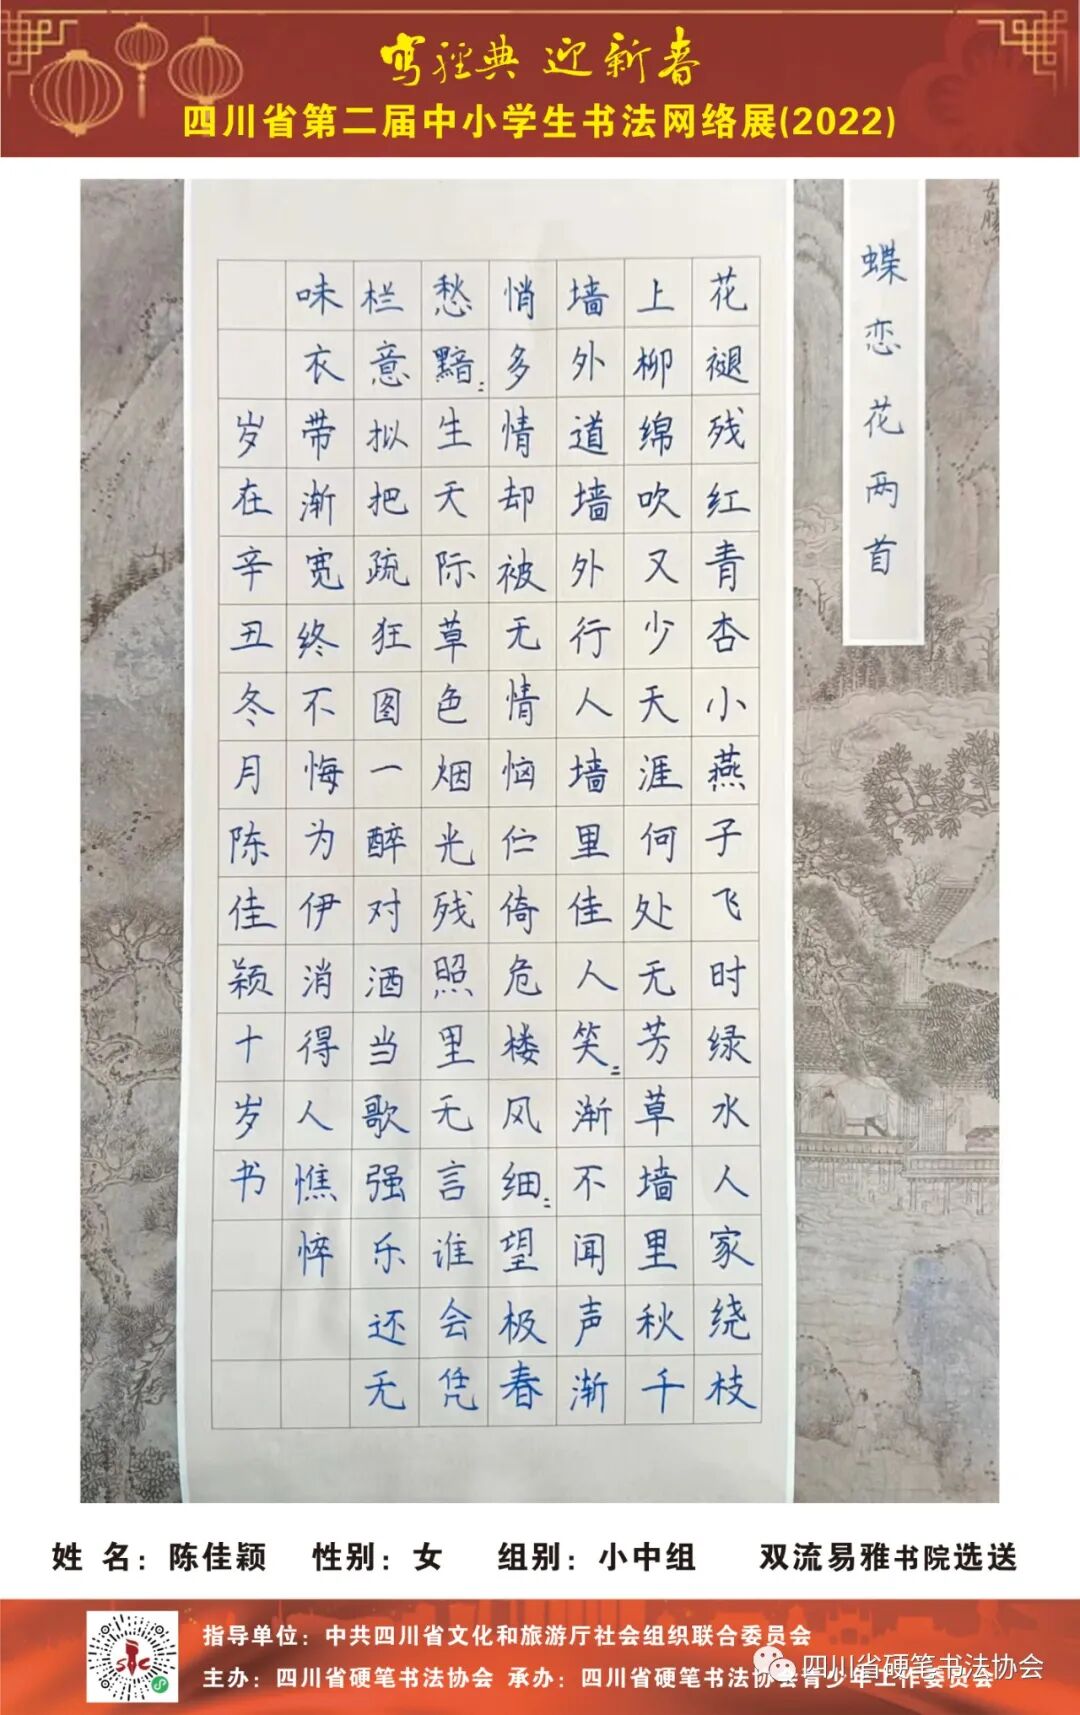 写经典 迎新春
四川省第二届中小学生书法网络展(2022)
蝶恋花两首
花褪残红青杏小燕子飞时绿水人家绕枝
上柳绵吹又少天涯何处无芳草墙里秋千
墙外道墙外行人墙里佳人笑=渐不闻声渐
悄多情却被无情恼伫倚危楼风细=望极春
愁黯=生天际草色烟光残照里无言谁会凭
栏意拟把疏狂图一醉对酒当歌强乐还无
味衣带渐宽终不悔为伊消得人憔悴
岁在辛丑冬月陈佳颖十岁书
姓 名：陈佳颖 性别：女 组别：小中组 双流易雅书院选送
指导单位：中共四川省文化和旅游厅社会组织联合委员会
主办：四川省硬笔书法协会 承办：四川省硬笔书法协会青少年工作委员会
四川省硬笔书法协会